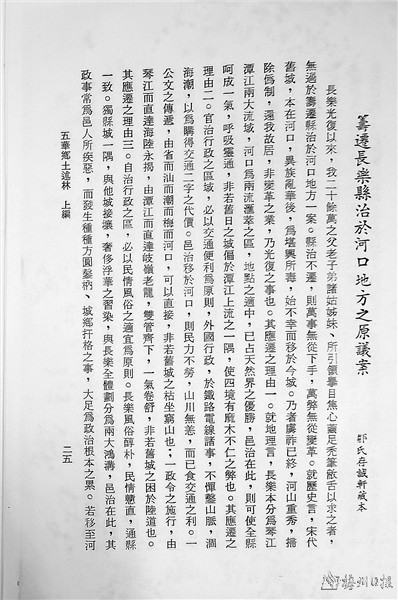 籌遷長樂縣治於河口地方之原議案
鄒氏存誠軒藏本
長樂光復以來，我二十餘萬之父老子弟諸姑姊妹、所引領舉目焦心繭足禿筆敝舌以求之者，
無過於籌遷縣治於河口地方一案。縣治不遷，則萬事無從下手，萬弊無從變革。就歷史言，宋代
舊城，本在河口，異族亂華後，為堪輿所毒，始不幸而移於今城。乃者虜祚已終，河山重秀，掃
除僞制，還我故居，非變革之業，乃光復之事也。其應遷之理由一。就地理言，長樂本分為琴江
潭江兩大流域，河口為兩流滙萃之區，地點之適中，已占天然界之優勝，邑治在此，則可使全縣
呵成一氣，呼吸靈通，非若舊日之城偏於潭江上流之一隅，使四境有麻木不仁之弊也。其應遷之
理由二。官治行政之區域，必以交通便利為原則，外國行政，於鐵路電線諸事，不憚鑿山脈，涸
海潮，以為購得交通二字之代價。邑治移於河口，則民力不勞，山川無恙，而已食交通之利。一
公文之傳遞，由省而汕而潮而梅而河口，可以直接，非若舊城之枯坐窮山也；一政令之施行，由
琴江而直達海陸永揭，由潭江而直達岐嶺老龍，雙管齊下，一氣卷舒，非若舊城之困於陸道也。
其應遷之理由三。自治行政之區，必以民情風俗之適宜為原則。長樂風俗醇朴，民情戇直，通縣
一致。獨縣城一隅，與他城接壤，奢侈浮華之習染，與長樂全體劃分為兩大鴻溝，邑治在此，其
政事常為邑人所疾惡，而發生種種方圓鑿枘、城鄉扞格之事，大足為政治根本之累。若移至河
五華鄉土述林 上編
二五
梅州日报